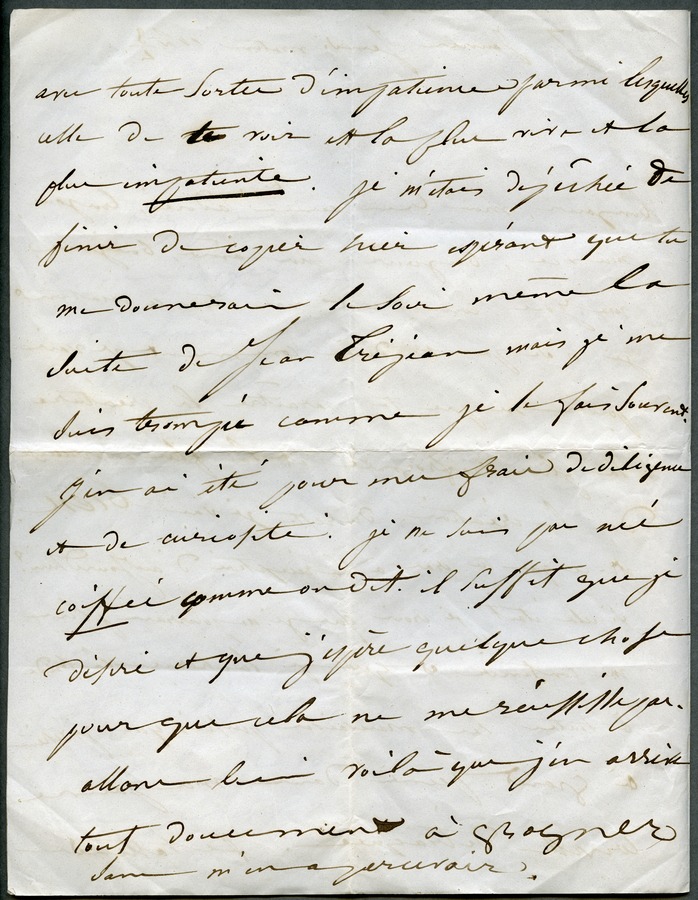 avec toute sorte d'impatience parmi lesquelles
celle de te voir est la plus vive et la
plus impatiente. je m'étais dépêchée de
finir de copier hier espérant que tu
me donnerais le soir même la
suite de Jean Tréjean mais je me
suis trompée comme je le fais souvent.
J'en ai été pour mes frais de diligence
et de curiosité. je ne suis pas née
coiffée comme on dit. il suffit que je
désire et que j'espère quelque chose
pour que cela ne me réussisse pas.
allons bien voilà que j'en arrive
tout doucement à grogner
sans m'en apercevoir.